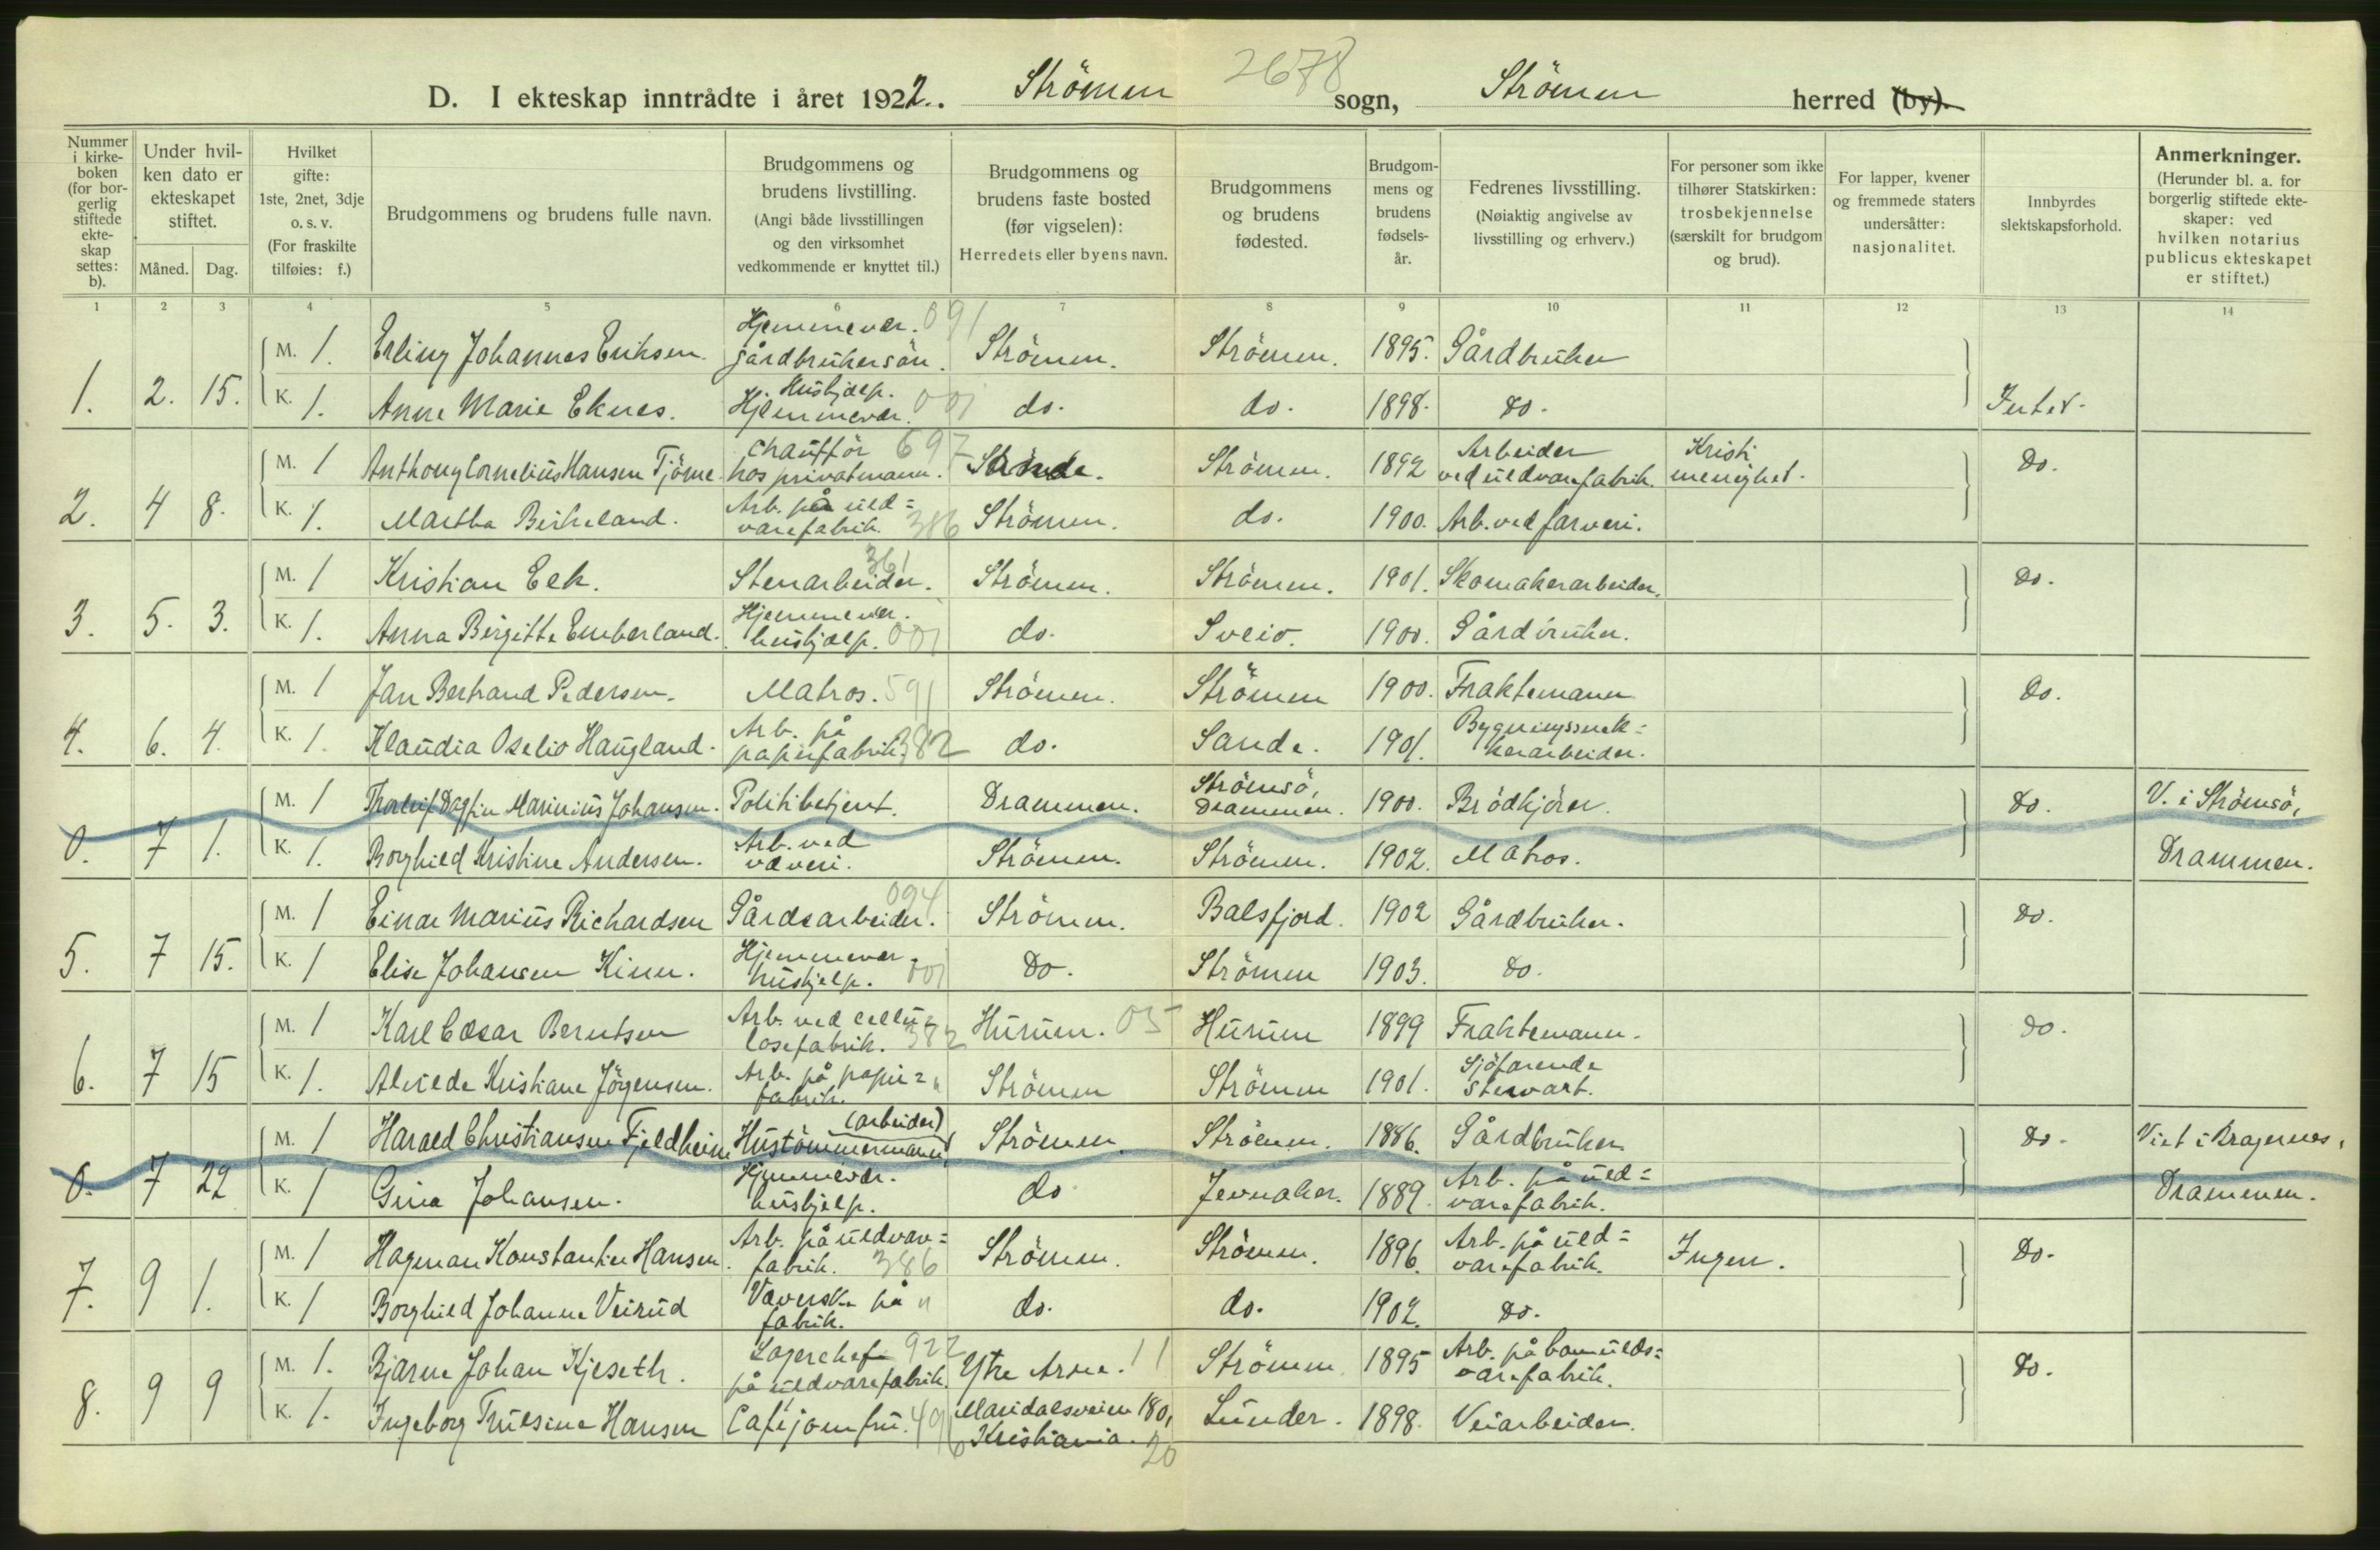 2678
D. I ekteskap inntrådte i året 1922. Strömm sogn, Strömm herred (by).
Nummer i kirkeboken (for borgerlig stiftede ekteskap settes: b).
Under hvilken dato er ekteskapet stiftet.
Måned. Dag.
Hvilket gifte: 1ste, 2net, 3dje o. s. v. (For fraskilte tilføies: f.)
Brudgommens og brudens fulle navn.
Brudgommens og brudens livstilling. (Angi både livsstillingen og den virksomhet vedkommende er knyttet til.)
Brudgommens og brudens faste bosted (før vigselen): Herredets eller byens navn.
Brudgommens og brudens fødested.
Brudgommens og brudens fødselsår.
Fedrenes livsstilling. (Nøiaktig angivelse av livsstilling og erhverv.)
For personer som ikke tilhører Statskirken: trosbekjennelse (særskilt for brudgom og brud).
For lapper, kvener og fremmede staters undersåtter: nasjonalitet.
Innbyrdes slektskapsforhold.
Anmerkninger. (Herunder bl. a. for borgerlig stiftede ekteskaper: ved hvilken notarius publicus ekteskapet er stiftet.)
1 2 3 4 5 6 7 8 9 10 11 12 13 14
1. 2. 15. M. 1. Erling Johannes Eriksen. Hjemmevær. gårdbrukersön. 091 Strömm. Strömm. 1895. Gårdbruker
K. 1. Anne Marie Eknes. Hushjælp. Hjemmevær. 001 do. do. 1898. Do. Intet.
2. 4 8. M. 1 Anthony Cornelius Hansen Tjöme. Chaufför hos privatmann. 697 Strömm. 1892 Arbeider ved uldvarefabrik. Kristi menighet. Do.
K. 1. Martha Birkeland. Arb. på uld=varefabrik. 386 Strömm. do. 1900. Arb. ved farveri.
3. 5. 3. M. 1 Kristian Eek. Stenarbeider. 361 Strömm. Strömm. 1901. Skomakerarbeider. Do.
K. 1. Anna Birgitte Emberland. Hjemmevær. hushjælp. 001 do. Sveio. 1900. Gårdbruker.
4. 6. 4. M. 1 Jan Bertrand Pedersen. Matros. 591 Strömm. Strömm 1900. Fraktemann Do.
K. 1. Klaudia Oselio Haugland. Arb. på papirfabrik. 382 do. Sande. 1901. Bygningssnek=kerarbeider.
0. 7 1. M. 1 Thorleif Dagfin Marinius Johansen. Politibetjent. Drammen. Strömsö, Drammen. 1900. Brödkjörer. Do. V. i Strömsö,
K. 1. Borghild Kristine Andersen. Arb. ved væveri. Strömm. Strömm. 1902. Matros. Drammen.
5. 7 15. M. 1 Einar Marius Richardsen Gårdsarbeider. 094 Strömm. Balsfjord. 1902 Gårdbruker. Do.
K. 1 Elise Johansen Kinn. Hjemmevær. hushjelp. 001 Do. Strömm 1903. Do.
6. 7 15 M. 1 Karl Cæsar Berntsen Arb. ved cellu=losefabrik. 382 Hurum. 05 Hurum 1899 Fraktemann. Do.
K. 1. Alvilde Kristiane Jörgensen. Arb. på papir=fabrik. " Strömm Strömm 1901. Sjöfarende stewart.
0. 7 22 M. 1 Harald Christiansen Fjeldheim Hustömmermann (arbeider) Strömm. Strömm. 1886. Gårdbruker Do. Viet i Bragernes,
K. 1 Gina Johansen. Hjemmevær. hushjelp. do Jevnaker. 1889. Arb. på uld=varefabrik. Drammen.
7. 9 1. M. 1 Hagman Konstantin Hansen. Arb. på uldvare=fabrik. 386 Strömm. Strömm. 1896. Arb. på uld=varefabrik. Ingen. Do.
K. 1 Borghild Johanne Veirud Væverske på fabrik. " do. do. 1902. Do.
8. 9 9 M. 1. Bjarne Johan Kjeseth. Lagerchef på uldvarefabrik. 922 Ytre Arna. 11 Strömm 1895 Arb. på bomulds=varefabrik. Do.
K. 1. Ingeborg Trulsine Hansen Caféjomfru. Maridalsveien 180, Kristiania. 20 Lunder. 1898. Veiarbeider.